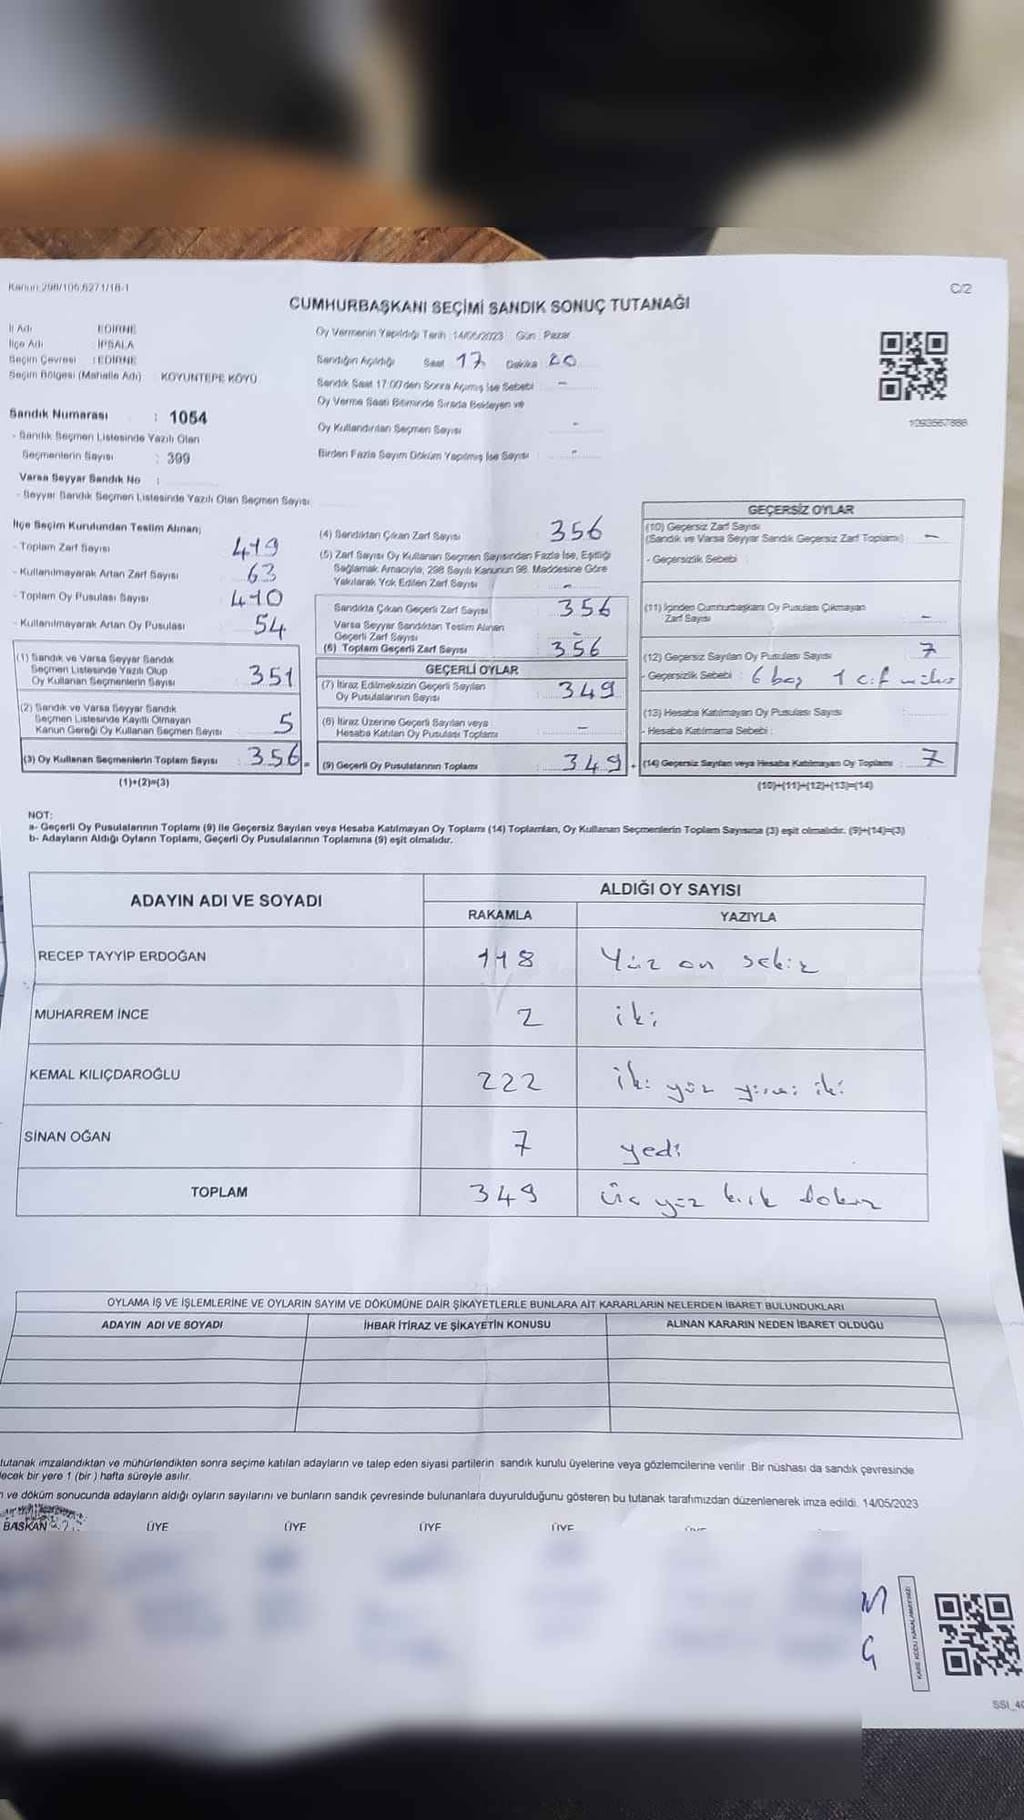 Kanun:298/106,6271/18-1
C/2
CUMHURBAŞKANI SEÇİMİ SANDIK SONUÇ TUTANAĞI
İl Adı : EDİRNE
İlçe Adı : İPSALA
Seçim Çevresi : EDİRNE
Seçim Bölgesi (Mahalle Adı) KOYUNTEPE KÖYÜ
Sandık Numarası : 1054
- Sandık Seçmen Listesinde Yazılı Olan
Seçmenlerin Sayısı : 399
Varsa Seyyar Sandık No :
- Seyyar Sandık Seçmen Listesinde Yazılı Olan Seçmen Sayısı
Oy Vermenin Yapıldığı Tarih :14/05/2023 Gün : Pazar
Sandığın Açıldığı Saat 17 Dakika 20
Sandık Saat 17:00'den Sonra Açımış İse Sebebi : -
Oy Verme Saati Bitiminde Sırada Bekleyen ve
Oy Kullandırılan Seçmen Sayısı -
Birden Fazla Sayım Döküm Yapılmış İse Sayısı -
1093567886
İlçe Seçim Kurulundan Teslim Alınan;
- Toplam Zarf Sayısı 419
- Kullanılmayarak Artan Zarf Sayısı 63
- Toplam Oy Pusulası Sayısı 410
- Kullanılmayarak Artan Oy Pusulası 54
(1) Sandık ve Varsa Seyyar Sandık
Seçmen Listesinde Yazılı Olup
Oy Kullanan Seçmenlerin Sayısı 351
(2) Sandık ve Varsa Seyyar Sandık
Seçmen Listesinde Kayıtlı Olmayan
Kanun Gereği Oy Kullanan Seçmen Sayısı 5
(3) Oy Kullanan Seçmenlerin Toplam Sayısı : 356
(1)+(2)=(3)
(4) Sandıktan Çıkan Zarf Sayısı 356
(5) Zarf Sayısı Oy Kullanan Seçmen Sayısından Fazla İse, Eşitliği
Sağlamak Amacıyla, 298 Sayılı Kanunun 98. Maddesine Göre
Yakılarak Yok Edilen Zarf Sayısı -
Sandıkta Çıkan Geçerli Zarf Sayısı 356
Varsa Seyyar Sandıktan Teslim Alınan
Geçerli Zarf Sayısı -
(6) Toplam Geçerli Zarf Sayısı 356
GEÇERLİ OYLAR
(7) İtiraz Edilmeksizin Geçerli Sayılan
Oy Pusulasının Sayısı 349
(8) İtiraz Üzerine Geçerli Sayılan veya
Hesaba Katılan Oy Pusulası Toplamı -
= (9) Geçerli Oy Pusulalarının Toplamı 349
GEÇERSİZ OYLAR
(10) Geçersiz Zarf Sayısı
(Sandık ve Varsa Seyyar Sandık Geçersiz Zarf Toplamı) : -
- Geçersizlik Sebebi
(11) İçinden Cumhurbaşkanı Oy Pusulası Çıkmayan
Zarf Sayısı -
(12) Geçersiz Sayılan Oy Pusulası Sayısı 7
- Geçersizlik Sebebi : 6 boş 1 çift mühür
(13) Hesaba Katılmayan Oy Pusulası Sayısı
- Hesaba Katılmama Sebebi :
+ (14) Geçersiz Sayılan veya Hesaba Katılmayan Oy Toplamı : 7
(10)+(11)+(12)+(13)=(14)
NOT:
a- Geçerli Oy Pusulalarının Toplamı (9) ile Geçersiz Sayılan veya Hesaba Katılmayan Oy Toplamı (14) Toplamları, Oy Kullanan Seçmenlerin Toplam Sayısına (3) eşit olmalıdır. (9)+(14)=(3)
b- Adayların Aldığı Oyların Toplamı, Geçerli Oy Pusulalarının Toplamına (9) eşit olmalıdır.
ADAYIN ADI VE SOYADI
ALDIĞI OY SAYISI
RAKAMLA YAZIYLA
RECEP TAYYİP ERDOĞAN 118 Yüz on sekiz
MUHARREM İNCE 2 iki
KEMAL KILIÇDAROĞLU 222 iki yüz yirmi iki
SİNAN OĞAN 7 yedi
TOPLAM 349 üç yüz kırk dokuz
OYLAMA İŞ VE İŞLEMLERİNE VE OYLARIN SAYIM VE DÖKÜMÜNE DAİR ŞİKAYETLERLE BUNLARA AİT KARARLARIN NELERDEN İBARET BULUNDUKLARI
ADAYIN ADI VE SOYADI İHBAR İTİRAZ VE ŞİKAYETİN KONUSU ALINAN KARARIN NEDEN İBARET OLDUĞU
tutanak imzalandıktan ve mühürlendikten sonra seçime katılan adayların ve talep eden siyasi partilerin sandık kurulu üyelerine veya gözlemcilerine verilir .Bir nüshası da sandık çevresinde
ecek bir yere 1 (bir ) hafta süreyle asılır.
ve döküm sonucunda adayların aldığı oyların sayılarını ve bunların sandık çevresinde bulunanlara duyurulduğunu gösteren bu tutanak tarafımızdan düzenlenerek imza edildi. 14/05/2023
BAŞKAN ÜYE ÜYE ÜYE ÜYE
KARE KODU KARALAMAYINIZ!
SSI_40